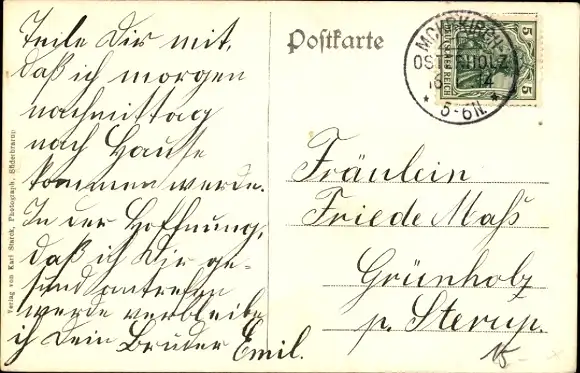 Teile Dir mit,
daß ich morgen
nachmittag
nach Hause
kommen werde.
In der Hoffnung,
daß ich Dir ge-
sund antreffen
werde verbleibe
ich Dein Bruder Emil.
Verlag von Karl Starck, Photograph, Süderbrarup
Postkarte
MOHRKIRCH-
OSTERHOLZ
18 14
* 5-6N. *
5
5
DEUTSCHES REICH
Fräulein
Friede Maß
Grünholz
p. Sterup.
15